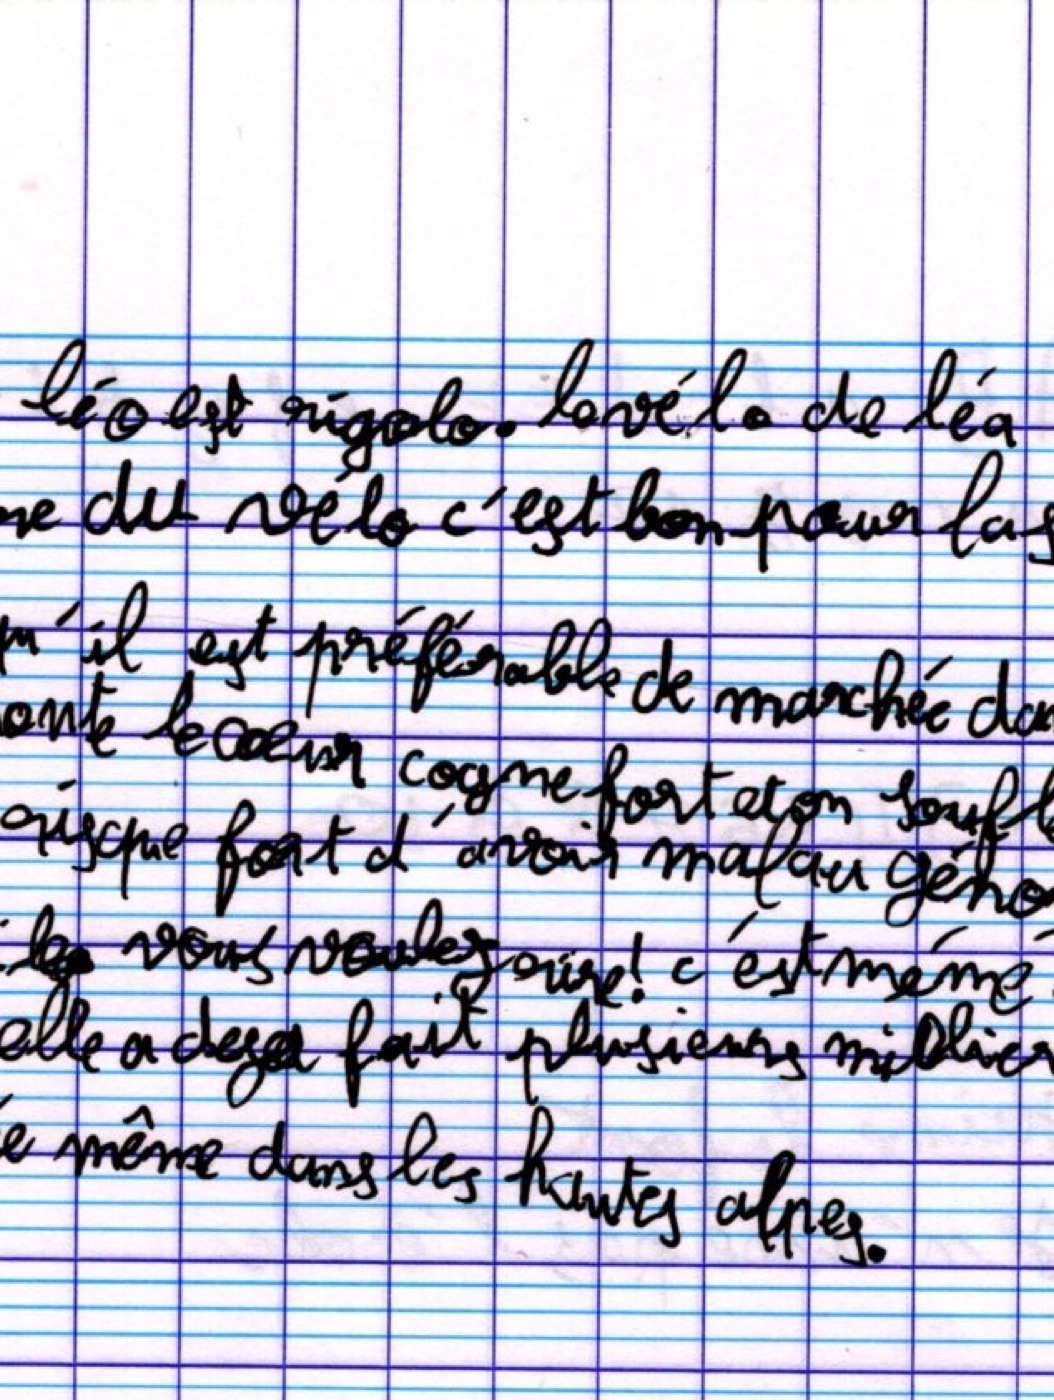 léo est rigolo. lovélo de léa
ne du vélo c'est bon pour la s
qu'il est préférable de marchée dan
onte le cœur cogne fort et on souffle
risque fort d'avoir mal au géno
vous voulez rire! c'est même
elle a deja fait plusieurs millier
e même dans les hautes alpes.